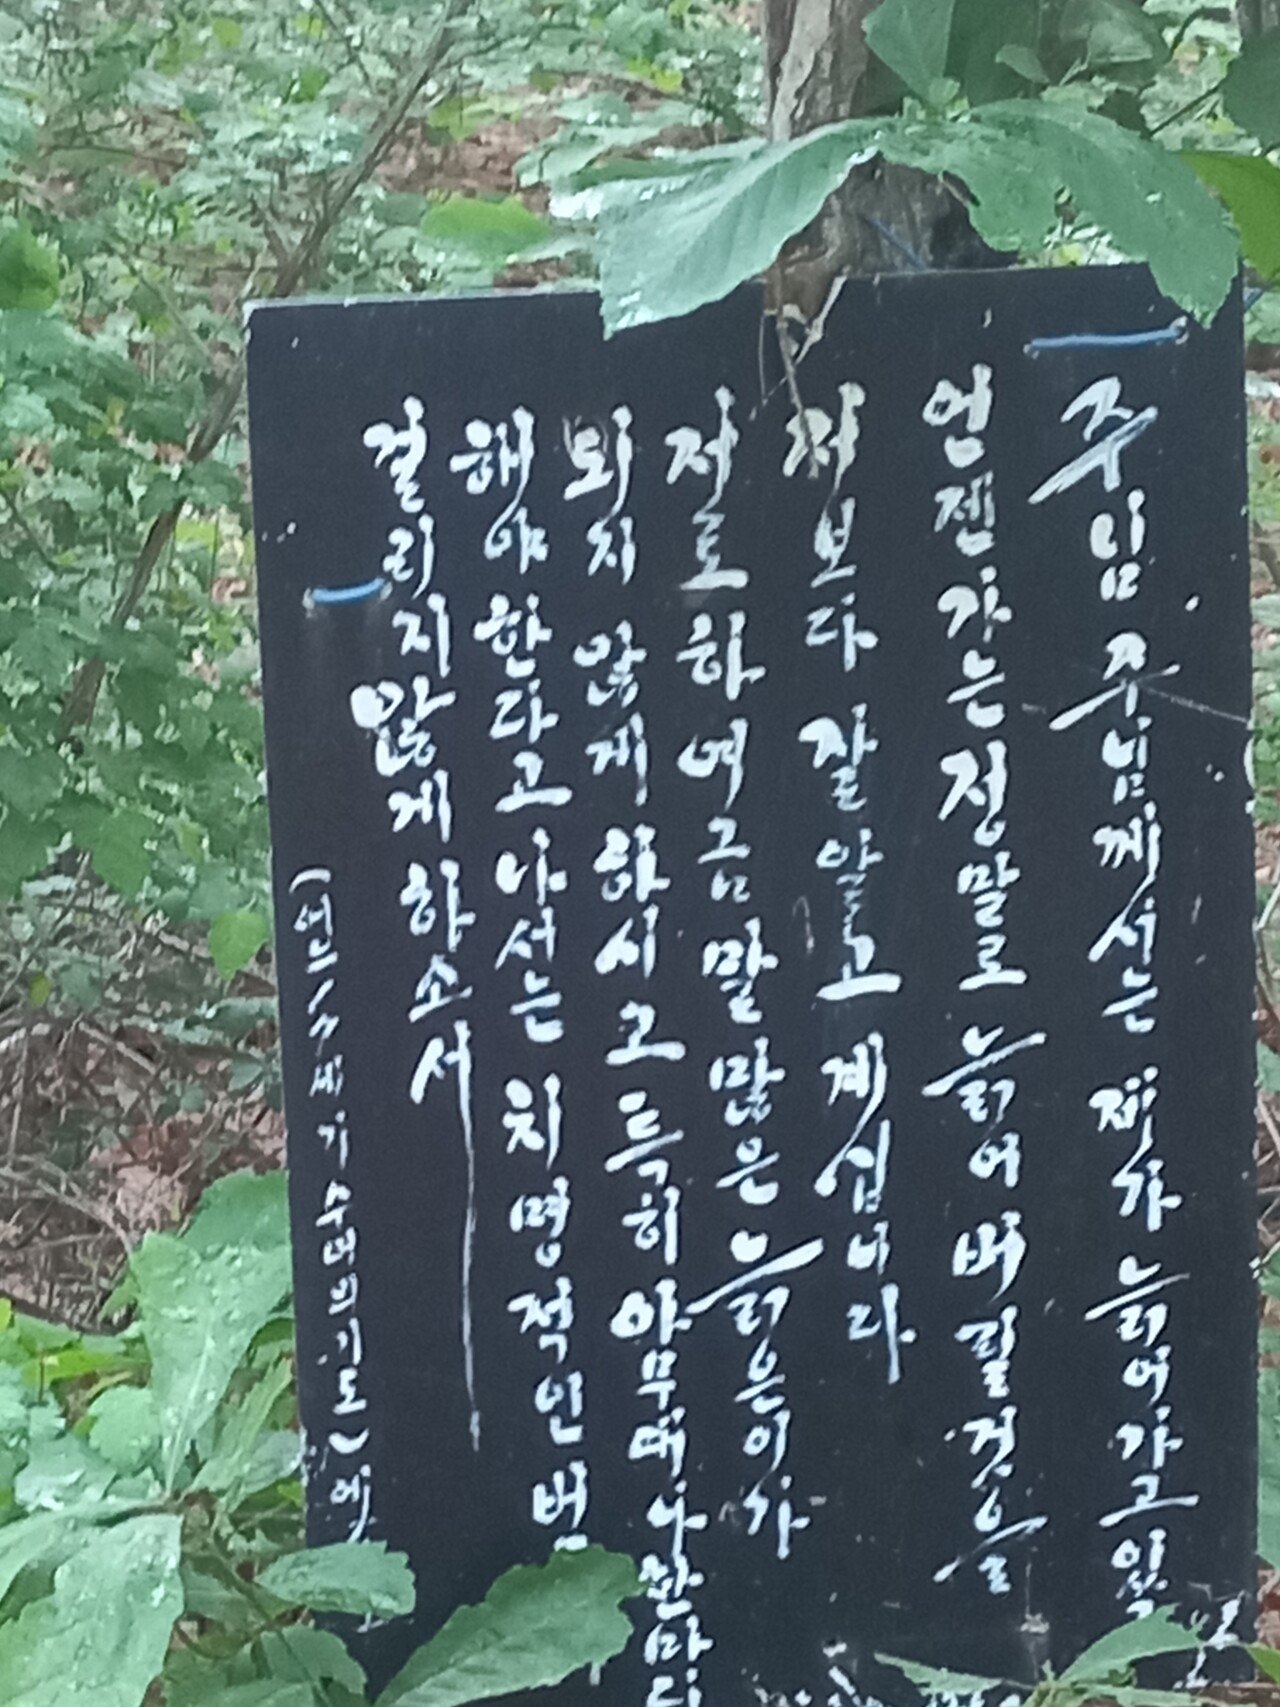 주님 주님께서는 제가 늙어가고 있
언젠가는 정말로 늙어 버릴것을
저보다 잘 알고 계십니다
저로 하여금 말 많은 늙은이가
되지 않게 하시고 특히 아무때나 한마디
해야 한다고 나서는 치명적인
걸리지 않게 하소서
(어느 17세기 수녀의 기도)에